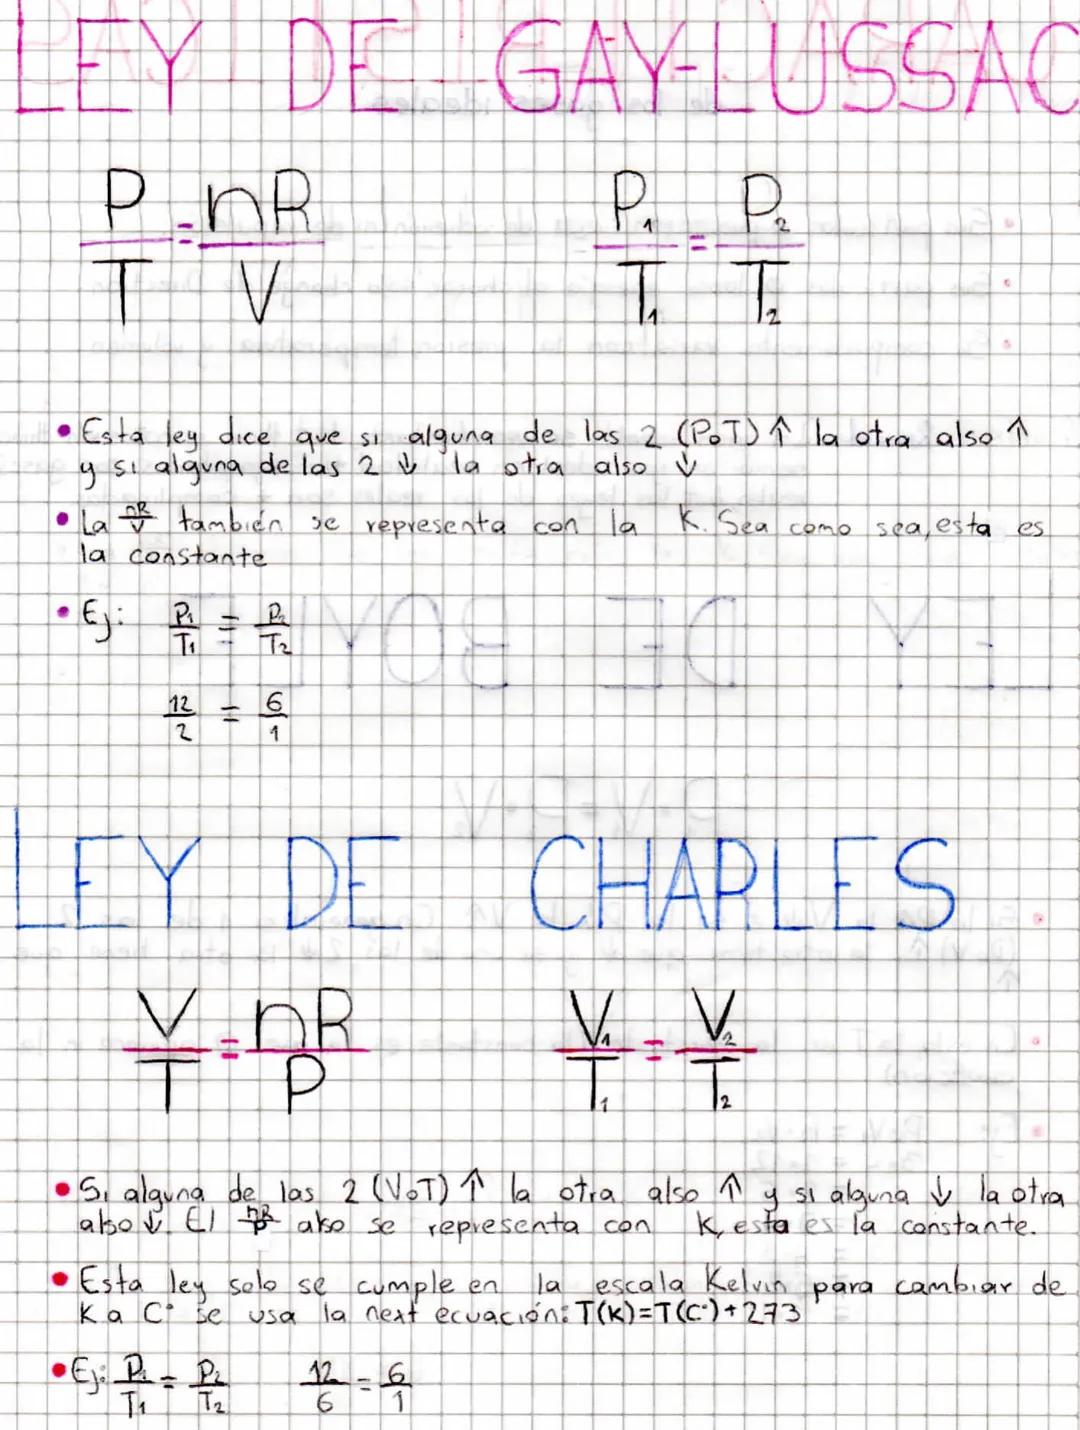 LEY DE GAY-LUSSAC
P/T = nR/V P₁/T₁ = P₂/T₂
• Esta ley dice que si alguna de las 2 (PoT) ↑ la otra also ↑
y si alguna de las 2 ↓ la otra also ↓
• La nR/V también se representa con la K. Sea como sea, esta es
la constante
• Ej: P₁/T₁ = P₂/T₂
12/2 = 6/1
LEY DE CHARLES
V/T = nR/P V₁/T₁ = V₂/T₂
• Si alguna de las 2 (VoT) ↑ la otra also ↑ y si alguna ↓ la otra
also ↓. El nR/P also se representa con K, esta es la constante.
• Esta ley solo se cumple en la escala Kelvin para cambiar de
K a C° se usa la next ecuación: T(K)=T(C°)+273
• Ej: P₁/T₁ = P₂/T₂ 12/6 = 6/1